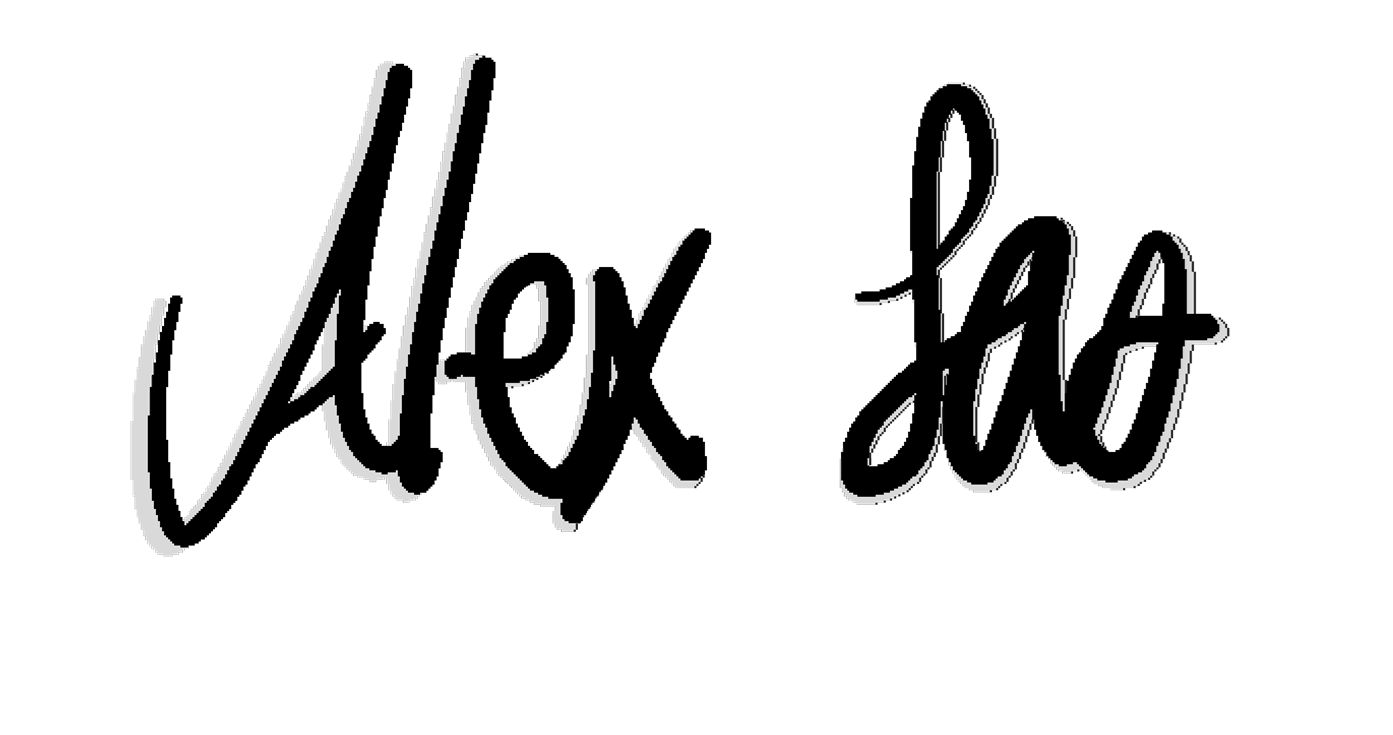 Alex Lao